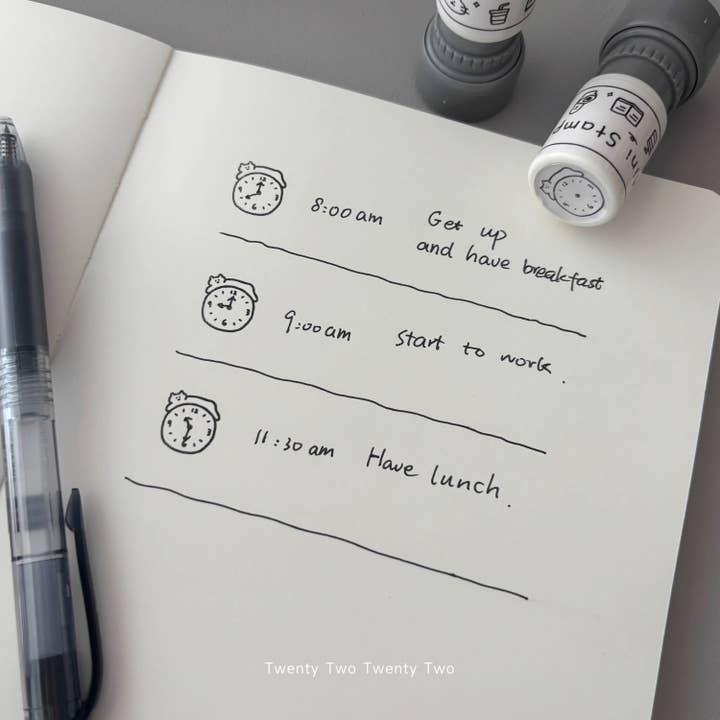 Mini Stamp
8:00 am Get up
and have breakfast
9:00am Start to work.
11:30 am Have lunch.
Twenty Two Twenty Two